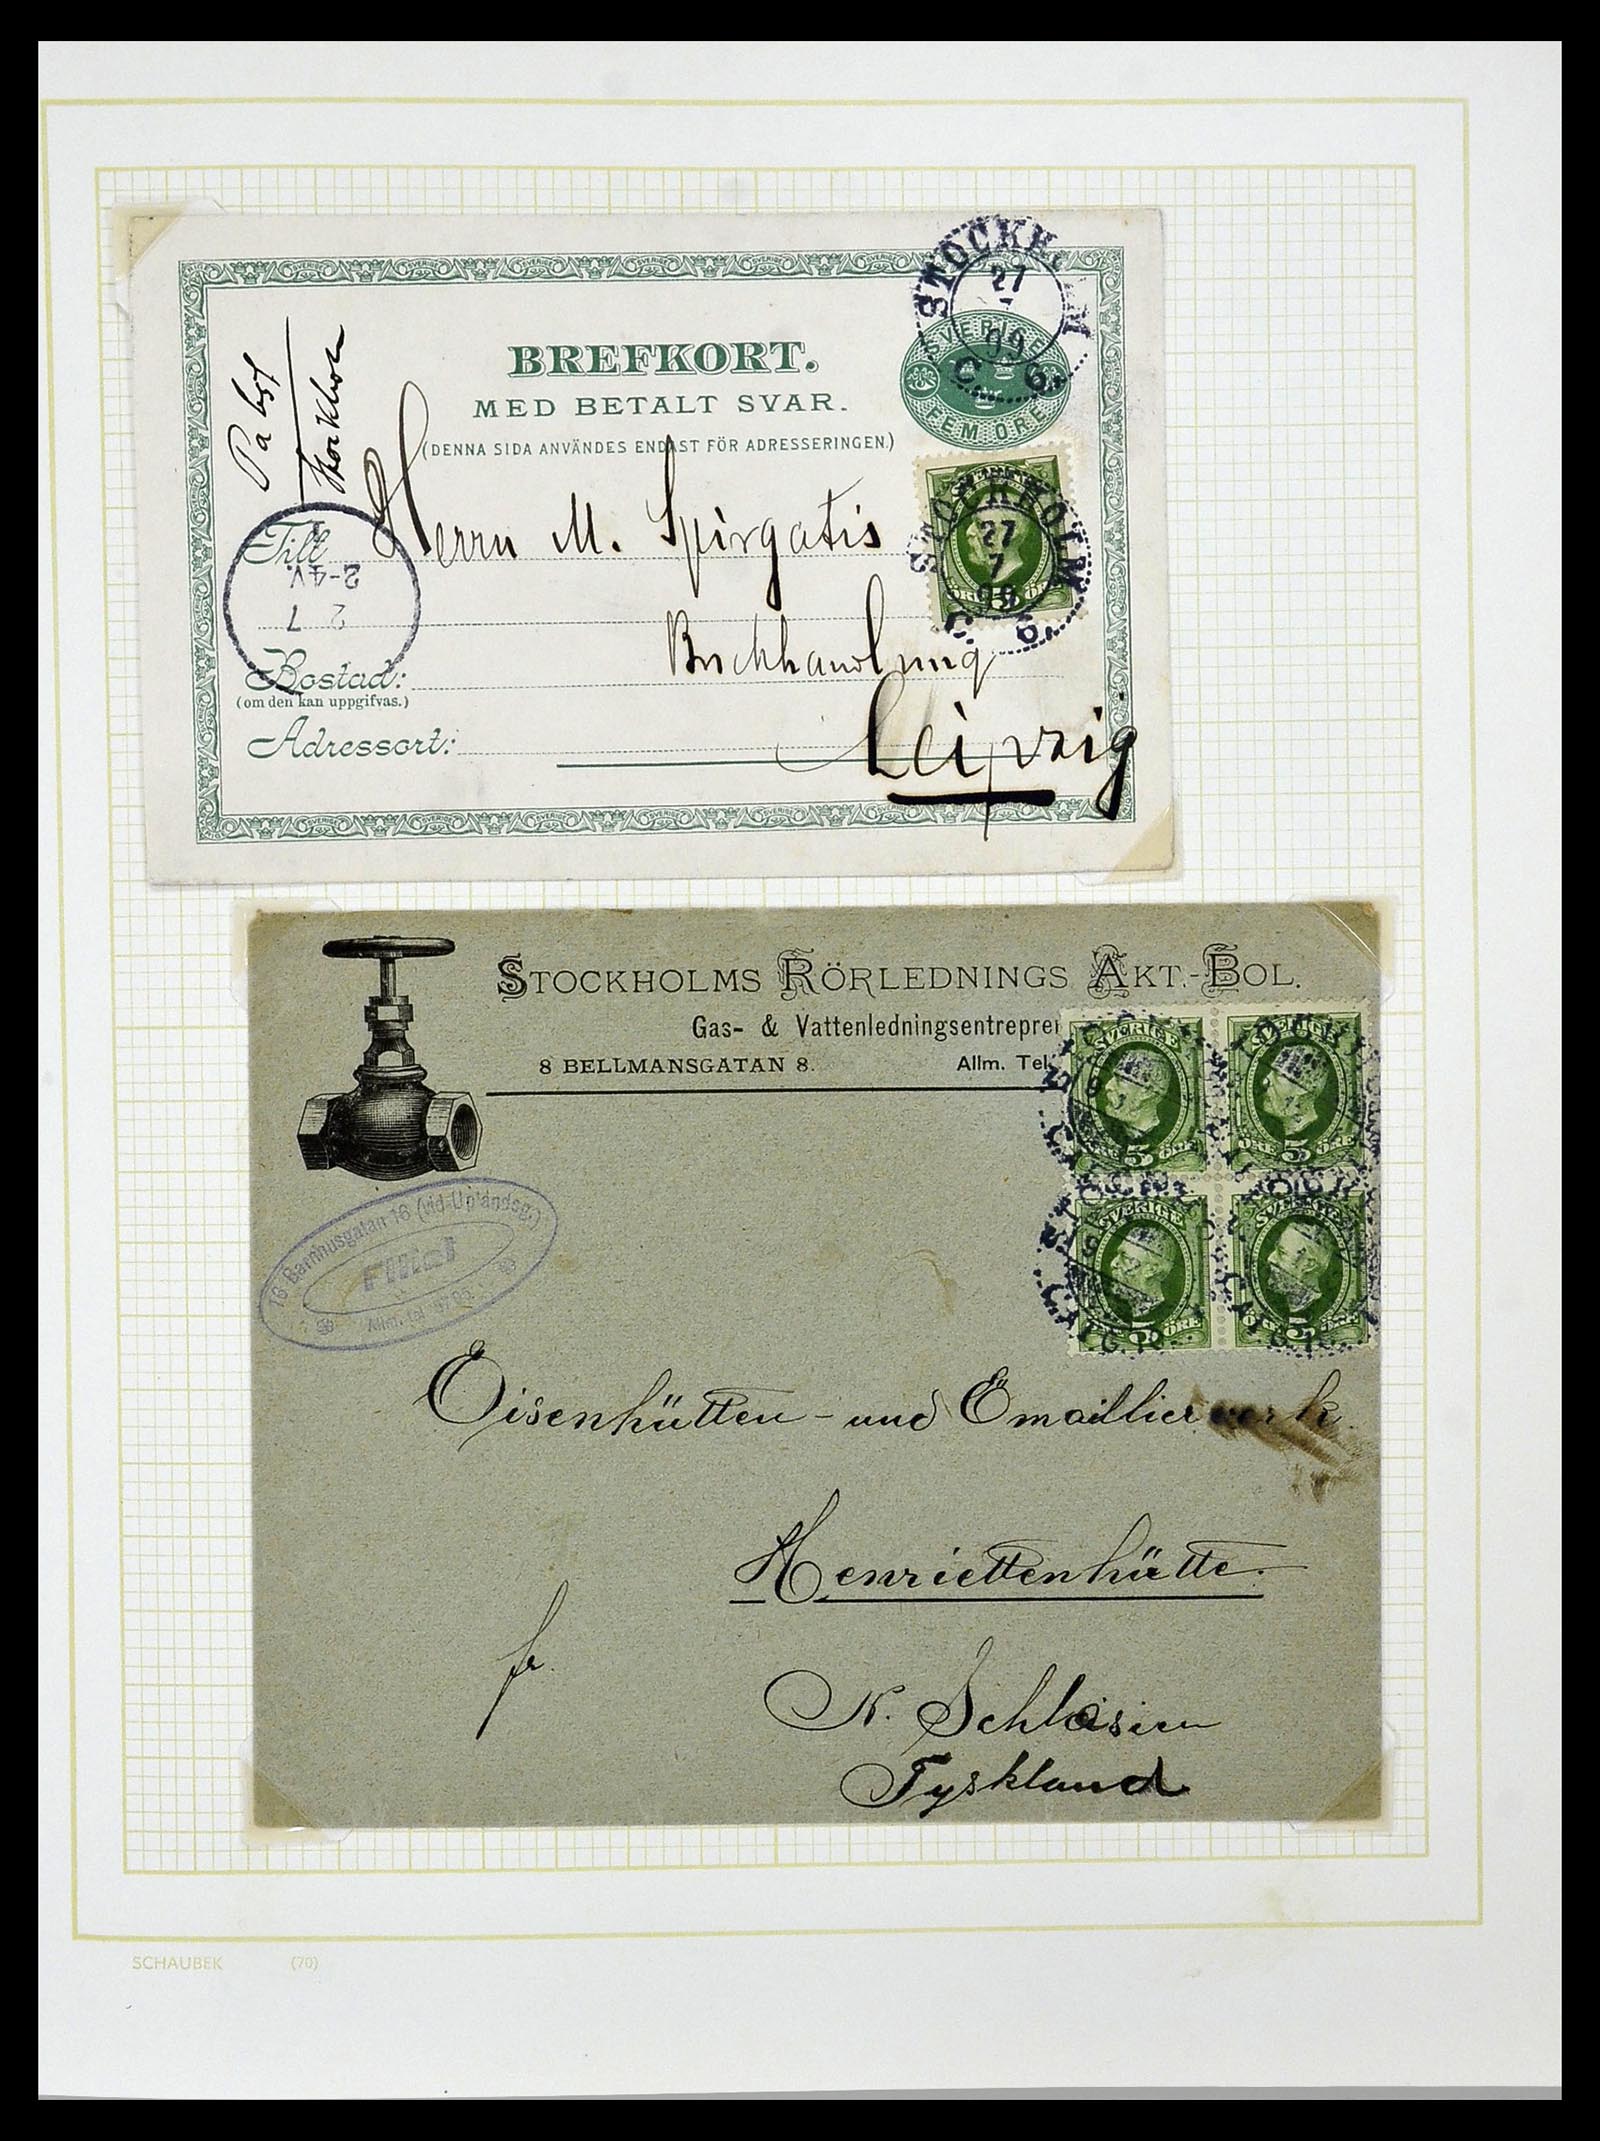 STOCKHOLM
27
99
C. 6.
SVERIGE
FEM ÖRE
BREFKORT.
MED BETALT SVAR.
(DENNA SIDA ANVÄNDES ENDAST FÖR ADRESSERINGEN.)
Stockholm
STOCKHOLM
27
7
99
ÖRE 5 ÖRE
Till
Herrn M. Spirgatis
2-4V.
2 7
Buchhandlung
Bostad:
(om den kan uppgifvas.)
Leipzig
Adressort:
STOCKHOLMS RÖRLEDNINGS AKT.-BOL.
Gas- & Vattenledningsentrepre
8 BELLMANSGATAN 8. Allm. Tel.
SVERIGE
ÖRE 5 ÖRE
SVERIGE
ÖRE 5 ÖRE
SVERIGE
5 ÖRE
SVERIGE
5 ÖRE
16 Barnhusgatan 16 (vid Uplandsg.)
Filial
Allm. tel.
Eisenhütten- und Emaillierwerk
Henriettenhütte.
fr.
N. Schlesien
Tyskland
SCHAUBEK (70)